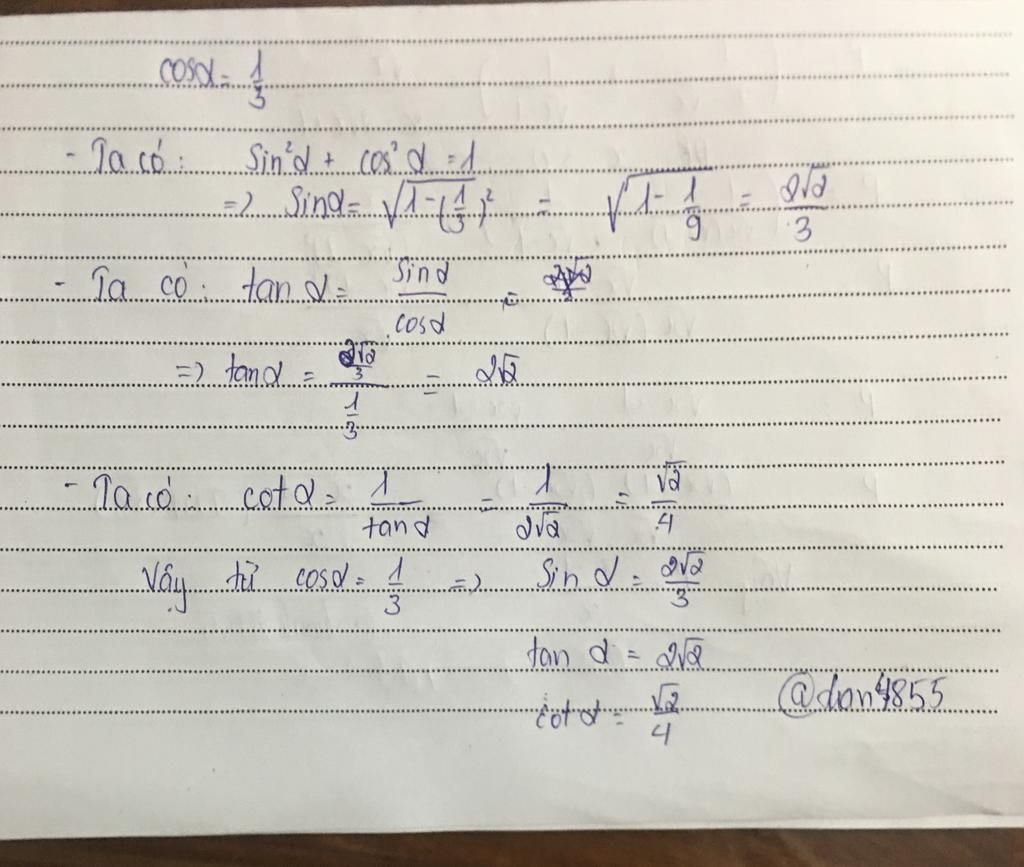 cosα = 1/3
- Ta có: Sin²α + cos²α = 1
=> Sinα = √(1-(1/3)²) = √(1-1/9) = 2√2/3
- Ta có: tan α = Sinα/cosα =
=> tanα = (2√2/3)/(1/3) = 2√2
- Ta có: cot α = 1/tanα = 1/2√2 = √2/4
Vây từ cosα = 1/3 => Sin α = 2√2/3
tan α = 2√2
cot α = √2/4